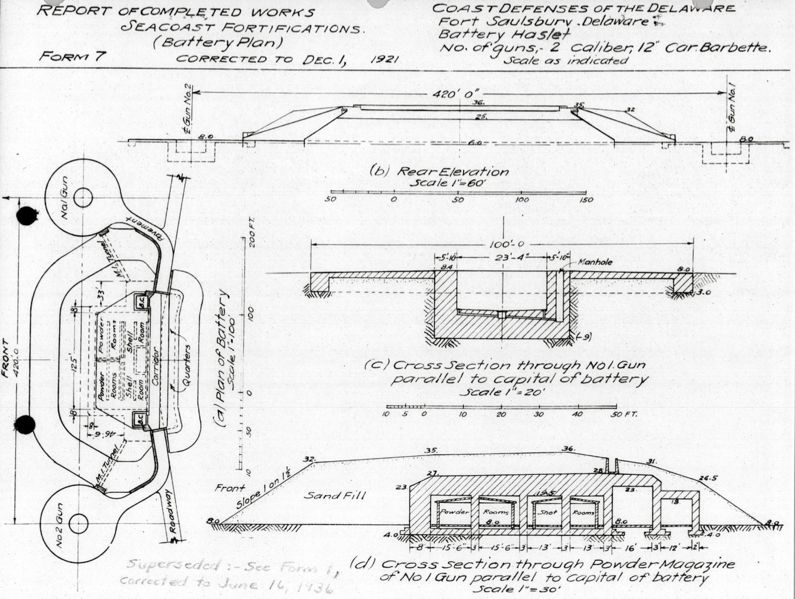 REPORT OF COMPLETED WORKS
SEACOAST FORTIFICATIONS.
(Battery Plan)
FORM 7
CORRECTED TO DEC. 1, 1921
COAST DEFENSES OF THE DELAWARE
Fort Saulsbury, Delaware
Battery Haslet
No. of guns,- 2 Caliber, 12" Car. Barbette.
Scale as indicated
℄ Gun No.2
420' 0"
℄ Gun No.1
36.
35.
32
25.
8.0
6.0
8.0
(b) Rear Elevation
Scale 1"=60'
50 0 50 100 150
No.1 Gun
Pavement
M.I. Tunnel
FRONT
420.0
33
8
125'
8
B.C.
Powder Rooms
Shell Room
Powder Rooms
Shell Room
Corridor
Quarters
B.C.
46'6
M.I. Tunnel
Roadway
No2 Gun
(a) Plan of Battery
Scale 1"=100'
200 FT.
100
0
50
10
100'-0
5'-10"
23'-4"
5'-10"
Manhole
8.4
8.0
3.0
(-9)
(c) Cross Section through No1. Gun
parallel to capital of battery
Scale 1"=20'
10 5 0 10 20 30 40 50 FT.
Front
Slope 1 on 1½
Sand Fill
8.0
32.
35.
36.
31.
26.5
27
28
23
23
18
Powder Rooms Shot Rooms
8.0
8.0
8.0
4.0
4.0
8 15'-6" 3' 15'-6" 3' 13' 3' 13' 3' 16' 3' 12' 2'
(d) Cross Section through Powder Magazine
of No1 Gun parallel to capital of battery
Scale 1"=30'
Superseded :- See Form 1,
corrected to June 16, 1936